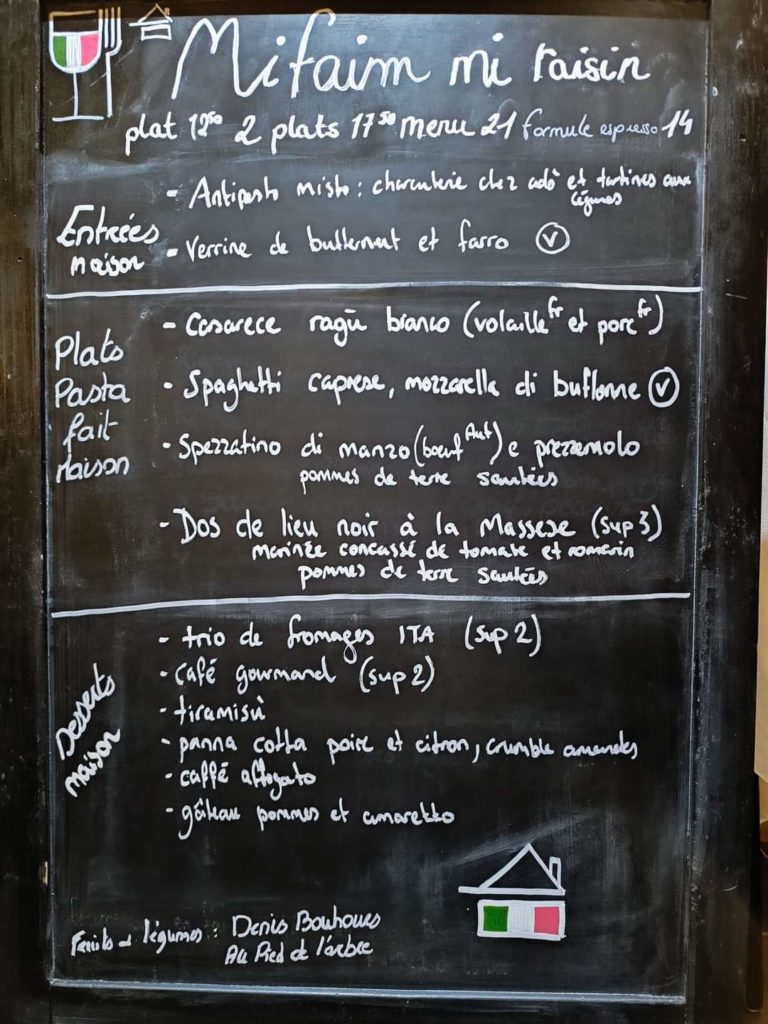 Mifaim mi raisin
plat 12⁵⁰ 2 plats 17⁵⁰ menu 21 formule espresso 14
Entrées maison
- Antipasto misto : charcuterie chez ado et tartines aux légumes
- Verrine de butternut et farro V
Plats
Pasta
fait
maison
- Casarece ragù bianco (volaille fr et porc fr)
- Spaghetti caprese, mozzarella di buflonne V
- Spezzatino di manzo (boeuf Aut) e prezzemolo
pommes de terre sautées
- Dos de lieu noir à la Massese (sup 3)
marinée concassé de tomate et romarin
pommes de terre sautées
Desserts
maison
- trio de fromages ITA (sup 2)
- Café gourmand (sup 2)
- tiramisù
- panna cotta poire et citron, crumble amandes
- caffé affogato
- gâteau pommes et amaretto
Fruits et légumes : Denis Bouhoues
Au Pied de l'arbre